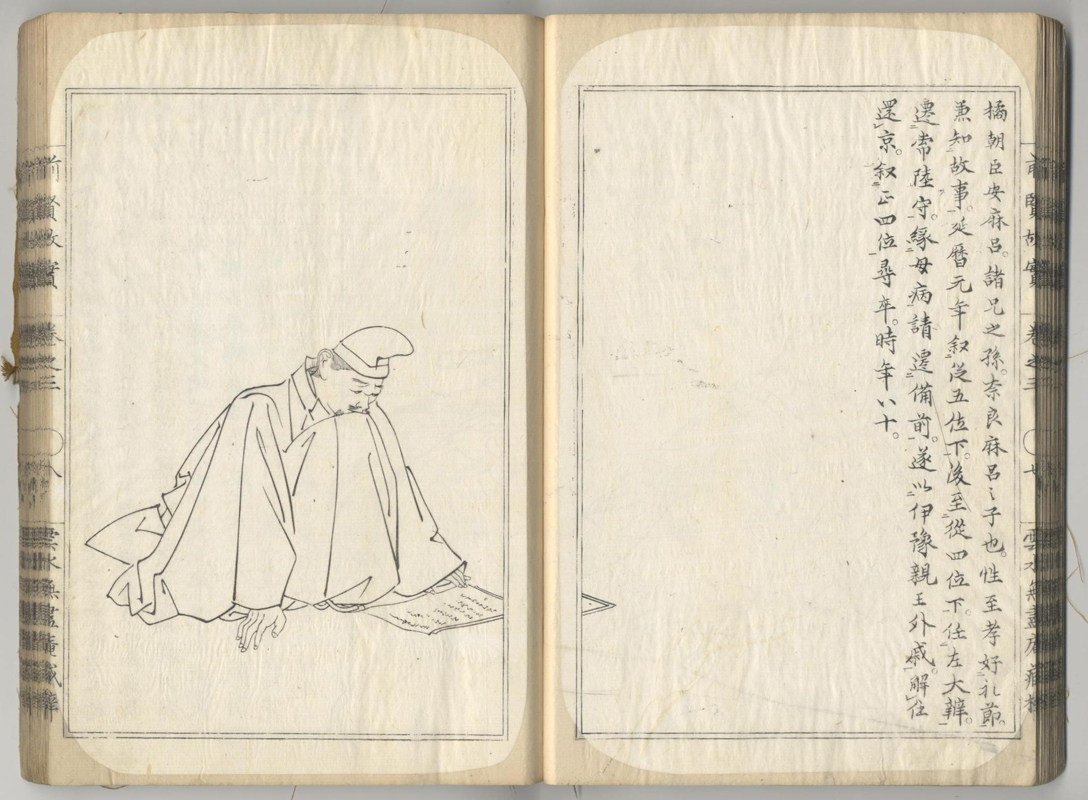 橘朝臣安麻呂。諸兄之孫。奈良麻呂〻子也。性至孝好礼節。
兼知故事。延暦元年叙從五位下。後至從四位下。任左大辨。
遷常陸守。縁母病請遷備前。遂以伊豫親王外戚。解任
還京。叙正四位尋卒。時年八十。
前賢故實 卷之三
前賢故實 卷之三